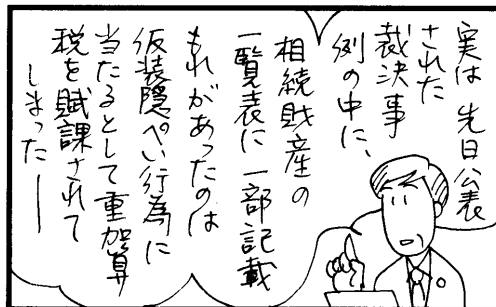 実は 先日公表
された
裁決事
例の中に、
相続財産の
一覧表に一部記載
もれがあったのは
仮装隠ぺい行為に
当たるとして重加算
税を賦課されて
しまった──